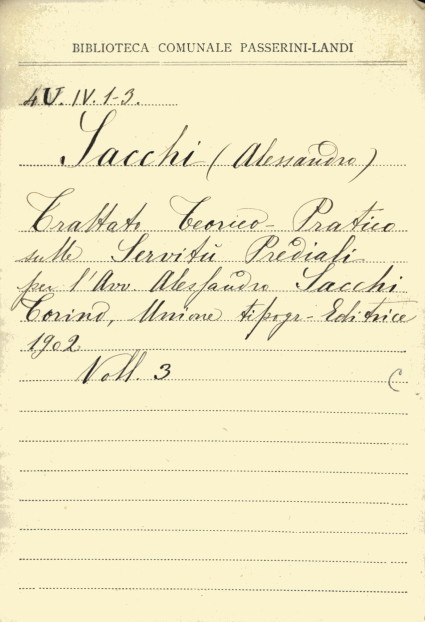 BIBLIOTECA COMUNALE PASSERINI-LANDI
4V. IV. 1-3.
Sacchi (Alessandro)
Trattato Teorico-Pratico
sulle Servitù Prediali
per l'Avv Alessandro Sacchi
Torino, Unione tipogr-Editrice
1902
Voll. 3
C